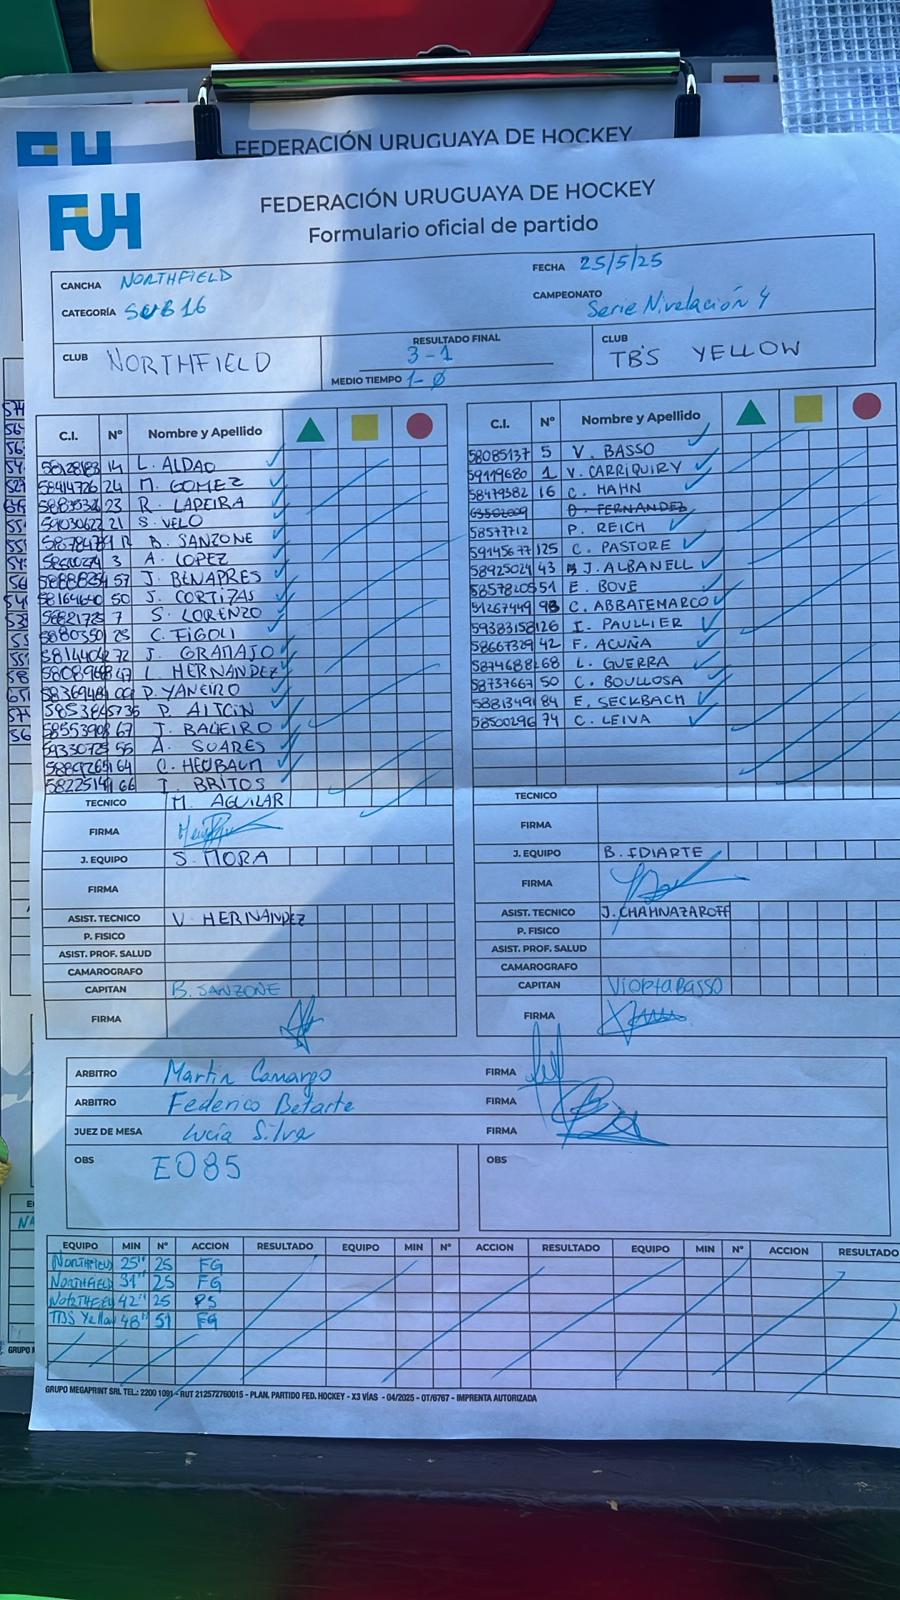 FEDERACIÓN URUGUAYA DE HOCKEY
FUH
FEDERACIÓN URUGUAYA DE HOCKEY
Formulario oficial de partido
CANCHA NORTHFIELD
FECHA 25/5/25
CATEGORÍA SUB16
CAMPEONATO Serie Nivelación 4
CLUB NORTHFIELD
RESULTADO FINAL 3-1
MEDIO TIEMPO 1-0
CLUB TBS YELLOW
C.I. Nº Nombre y Apellido
14 L. ALDAO
58414726 24 M. GOMEZ
23 R. LAPEIRA
59030622 21 S. VELO
B. SANZONE
3 A. LOPEZ
57 J. BENAPRES
50 J. CORTIZAS
7 S. LORENZO
25 C. FIGOLI
72 J. GRAMAJO
47 L. HERNANDEZ
P. YANEIRO
36 P. ALTCIN
67 J. BALIEIRO
55 A. SUARES
64 C. HEUBAUM
66 I. BRITOS
TECNICO M. AGUILAR
FIRMA
J. EQUIPO S. MORA
FIRMA
ASIST. TECNICO V. HERNANDEZ
P. FISICO
ASIST. PROF. SALUD
CAMAROGRAFO
CAPITAN B. SANZONE
FIRMA
C.I. Nº Nombre y Apellido
58085137 5 V. BASSO
59119680 1 V. CARRIQUIRY
58479382 16 C. HAHN
FERNANDEZ
58577712 P. REICH
59145677 125 C. PASTORE
58925024 43 J. ALBANELL
51 E. BOVE
51267449 98 C. ABBATEMARCO
59383158 126 I. PAULLIER
58667329 42 F. ACUÑA
68 L. GUERRA
58737667 50 C. BOULLOSA
58813491 84 E. SECKBACH
58500296 74 C. LEIVA
TECNICO
FIRMA
J. EQUIPO B. IDIARTE
FIRMA
ASIST. TECNICO J. CHAHNAZAROFF
P. FISICO
ASIST. PROF. SALUD
CAMAROGRAFO
CAPITAN Violeta Basso
FIRMA
ARBITRO Martin Camargo FIRMA
ARBITRO Federico Betarte FIRMA
JUEZ DE MESA Lucía Silva FIRMA
OBS E085
OBS
EQUIPO MIN Nº ACCION RESULTADO EQUIPO MIN Nº ACCION RESULTADO EQUIPO MIN Nº ACCION RESULTADO
NORTHFIELD 25" 25 FG
NORTHFIELD 31" 25 FG
NORTHFIELD 42" 25 PS
TBS Yellow 48" 51 FG
GRUPO MEGAPRINT SRL TEL.: 2200 1091 - RUT 212572760015 - PLAN. PARTIDO FED. HOCKEY - X3 VÍAS - 04/2025 - OT/6767 - IMPRENTA AUTORIZADA